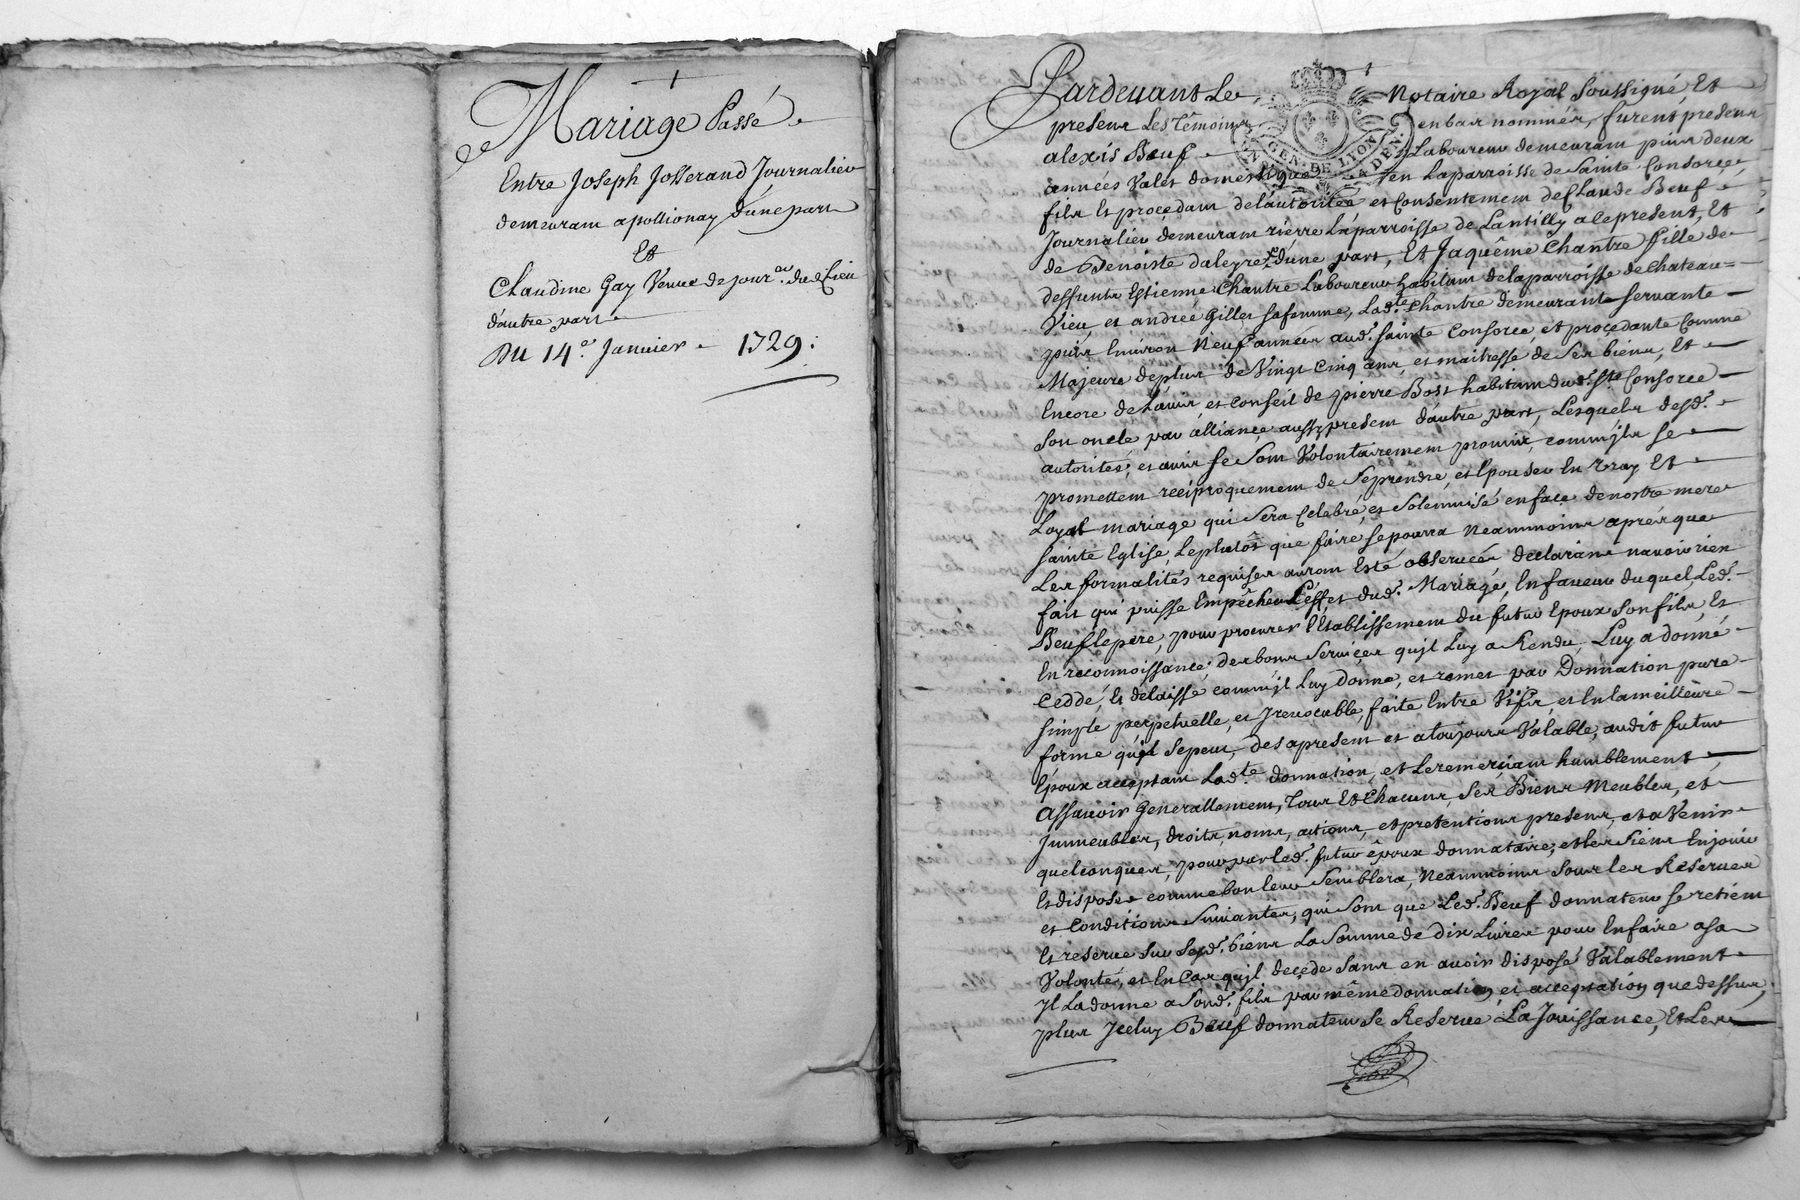 Mariage Passé
Entre Joseph Josserand Journalier
demeurant a pollionay d'une part
Et
Claudine Gay Veuve de jour.er du d. Lieu
d'autre part
Du 14.e Janvier 1729.
Pardevant Le Notaire Royal soussigné, Et
presens Les Têmoins en bas nommés, furent presens
alexis Beuf Laboureur demeurant puis deux
années Valet domestique en La parroisse de Sainte Consorce
fils Et procedant de l'autorité et Consentement de Claude Beuf
Journalier demeurant riere La parroisse de Lantilly a ce present, Et
de Benoiste d'une part, Et Jaquême Chantre fille de
deffunts Estienne Chantre Laboureur habitant de la parroisse de Chateau-
Vieu, et andrée Gilles sa femme, Lad.te Chantre demeurant servante
puis Environ Neuf années aud. Sainte Consorce, et procedante Comme
Majeure de plus de Vingt Cinq ans, et maitresse de Ses biens, Et
Encore de L'avis et Conseil de pierre Bost habitant dud. Ste Consorce
Son oncle par alliance aussy present d'autre part, Lesquels desd.
autorités, et avis se Sont Volontairement promis, comm'ils se
promettent reciproquement de Se prendre, et Epouser En vray Et
Loyal mariage qui Sera Celebré, et Solemnisé en face de nostre mere
Sainte Eglise, Le plutost que faire se pourra Neammoins aprés que
Les formalités requises auront Esté observées declarans n'avoir rien
fait qui puisse Empêcher L'effet dud. Mariage, En faveur duquel Led.
Beuf le pere, pour procurer l'Etablissement du futur Epoux Son fils, Et
En reconnoissance des bons Services qu'il Luy a Rendu, Luy a donné
Ceddé, Et delaissé comm'il Luy donne, et remet par Donnation pure
simple perpetuelle, et Irrevocable, faite Entre Vifs, et En la meilleure
forme qu'il Se peut, des a present et a toujours Valable, audit futur
Epoux acceptant Lad.te donnation, et Le remerciant humblement
Assavoir Generallement, Tous Et Chacuns, Ses Biens Meubles, et
Immeubles, droits, noms, actions, et pretentions presens, et a Venir
quelconques, pour par led. futur époux donnataire, et les Siens En jouir
Et disposer comme bon leur Semblera, Neammoins Sous les Reserves
et Conditions Suivantes, qui Sont que Led. Beuf donnateur Se retient
Et reserve Sur Sesd. biens La Somme de dix Livres pour En faire a sa
Volonté, et En Cas qu'il decede Sans en avoir disposé Valablement
Il La donne a Sond. fils par même donnation, et acceptation que dessus,
plus Iceluy Beuf donnateur Se Reserve La Jouissance, Et Les
GEN. DE LION